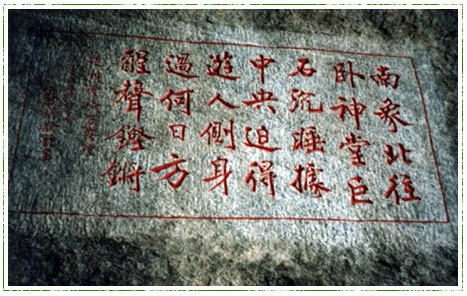 南象北往
卧神堂巨
石沉睡據
中央迫得
遊人側身
過何日方
醒聲鏗鏘